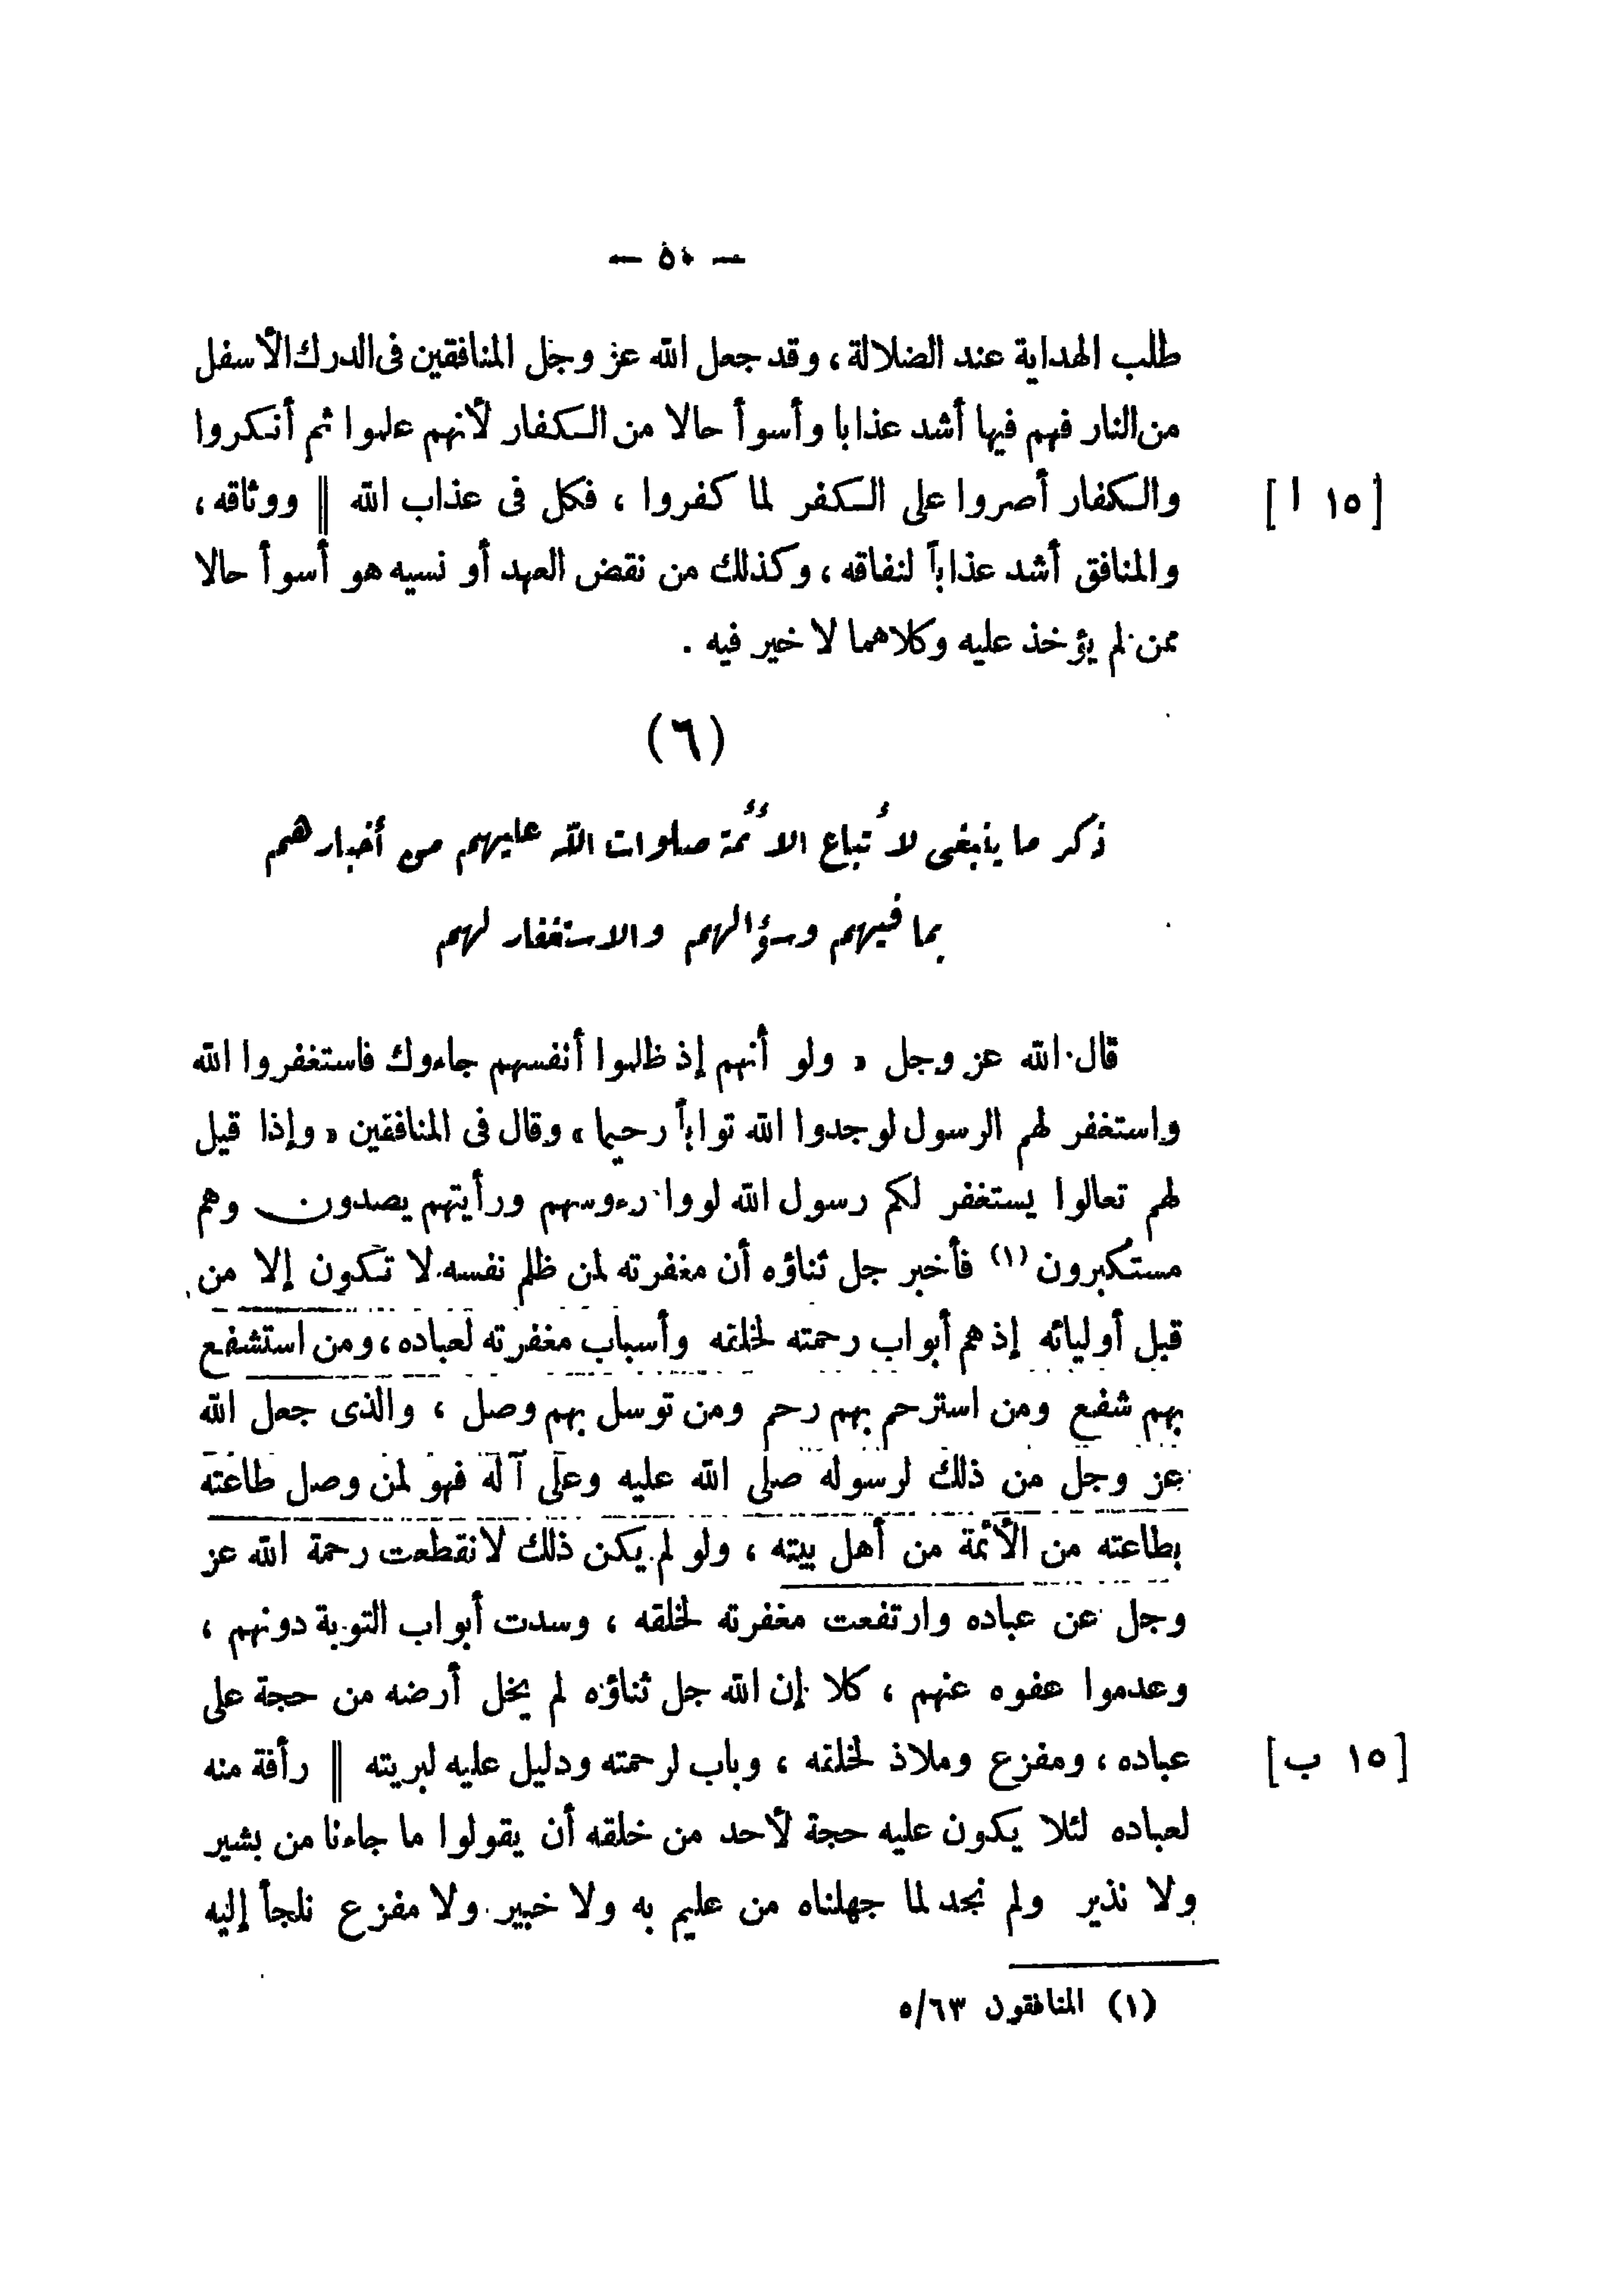 — ٥٠ —
طلب الهداية عند الضلالة ، وقد جعل الله عز وجل المنافقين فى الدرك الأسفل
من النار فهم فيها أشد عذابا وأسوأ حالا من الكفار لأنهم علموا ثم أنكروا
والكفار أصروا على الكفر لما كفروا ، فكل فى عذاب الله || ووثاقه ، [١٥ ا]
والمنافق أشد عذاباً لنفاقه ، وكذلك من نقض العهد أو نسيه هو أسوأ حالا
ممن لم يؤخذ عليه وكلاهما لا خير فيه .
(٦)
ذكر ما ينبغى لأتباع الأئمة صلوات الله عليهم من أخبارهم
بما فيهم وسؤالهم والاستغفار لهم
قال الله عز وجل « ولو أنهم إذ ظلموا أنفسهم جاءوك فاستغفروا الله
واستغفر لهم الرسول لوجدوا الله تواباً رحيما » وقال فى المنافقين « وإذا قيل
لهم تعالوا يستغفر لكم رسول الله لووا رءوسهم ورأيتهم يصدون وهم
مستكبرون (١) فأخبر جل ثناؤه أن مغفرته لمن ظلم نفسه لا تكون إلا من
قبل أوليائه إذ هم أبواب رحمته لخلقه وأسباب مغفرته لعباده ، ومن استشفع
بهم شفع ومن استرحم بهم رحم ومن توسل بهم وصل ، والذى جعل الله
عز وجل من ذلك لرسوله صلى الله عليه وعلى آله فهو لمن وصل طاعته
بطاعته من الأئمة من أهل بيته ، ولو لم يكن ذلك لانقطعت رحمة الله عز
وجل عن عباده وارتفعت مغفرته لخلقه ، وسدت أبواب التوبة دونهم ،
وعدموا عفوه عنهم ، كلا إن الله جل ثناؤه لم يخل أرضه من حجة على
عباده ، ومفزع وملاذ لخلقه ، وباب لرحمته ودليل عليه لبريته || رأفة منه [١٥ ب]
لعباده لئلا يكون عليه حجة لأحد من خلقه أن يقولوا ما جاءنا من بشير
ولا نذير ولم نجد لما جهلناه من عليم به ولا خبير ولا مفزع نلجأ إليه
(١) المنافقون ٥/٦٣